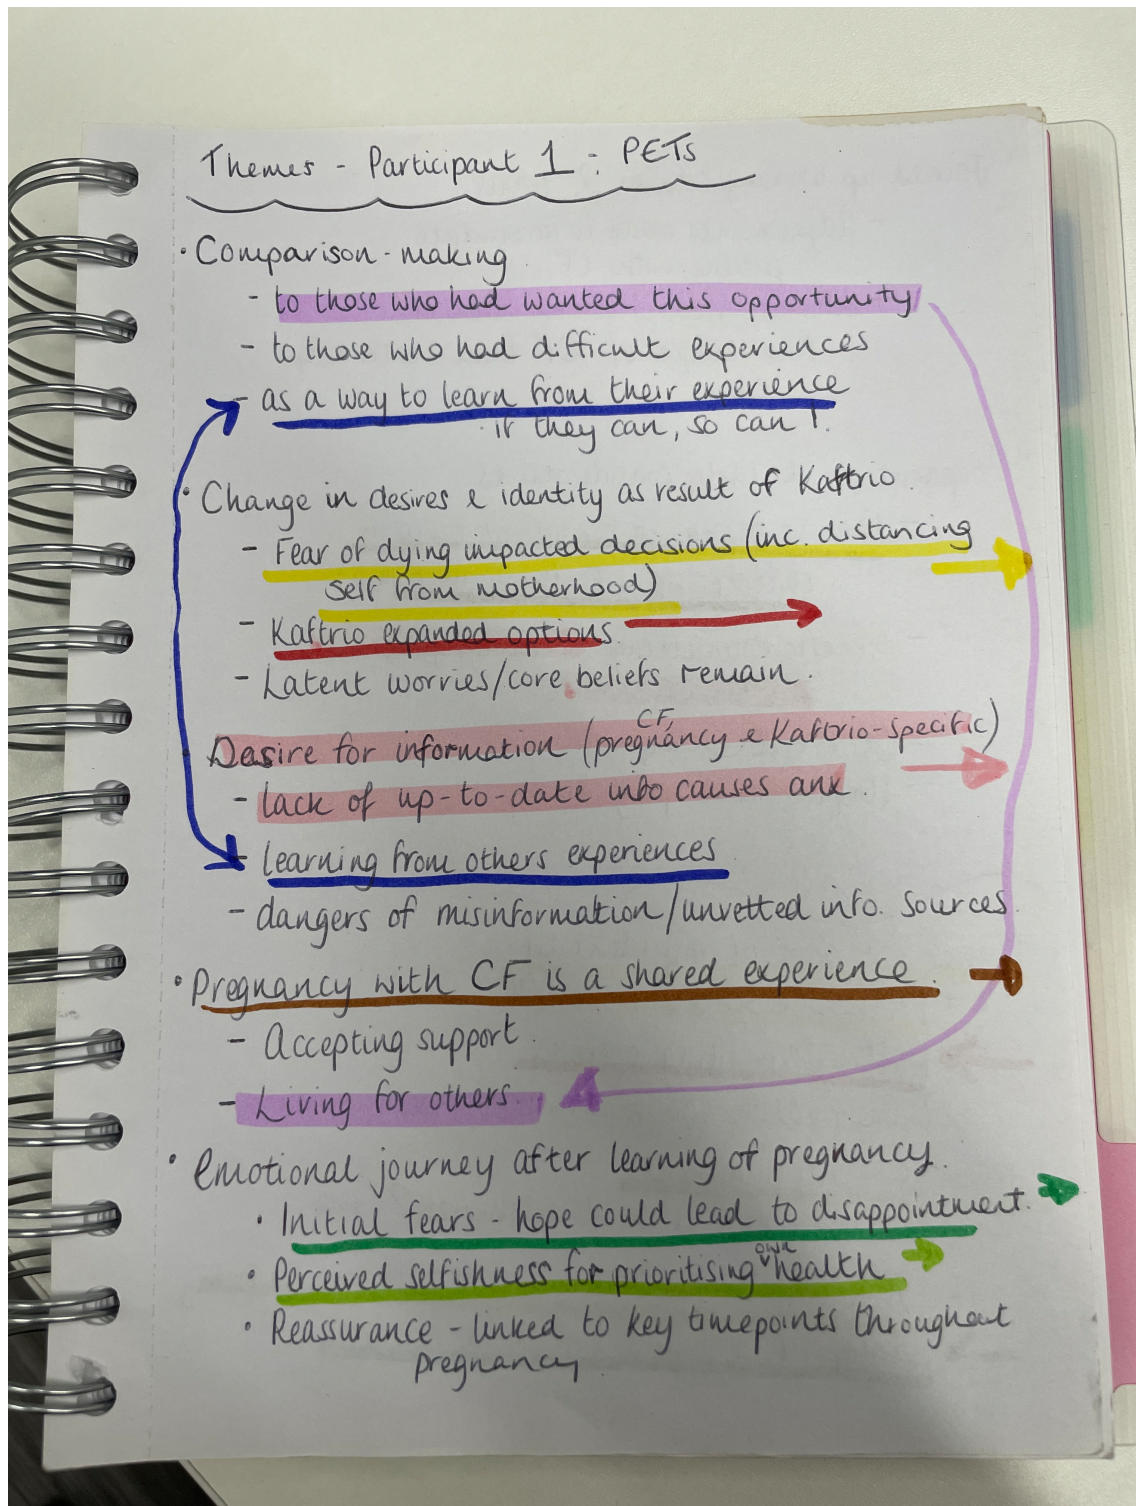 Themes - Participant 1 : PETs
· Comparison-making
- to those who had wanted this opportunity
- to those who had difficult experiences
- as a way to learn from their experience
· if they can, so can I.
· Change in desires & identity as result of Kaftrio.
- Fear of dying impacted decisions (inc. distancing
self from motherhood)
- Kaftrio expanded options.
- Latent worries/core beliefs remain.
CF,
Desire for information (pregnancy & Kaftrio-specific)
- lack of up-to-date info causes anx.
- learning from others experiences
- dangers of misinformation/unvetted info. sources.
· Pregnancy with CF is a shared experience.
- Accepting support.
- Living for others.
· emotional journey after learning of pregnancy.
· Initial fears - hope could lead to disappointment.
own
· Perceived selfishness for prioritising health
· Reassurance - linked to key timepoints throughout
pregnancy